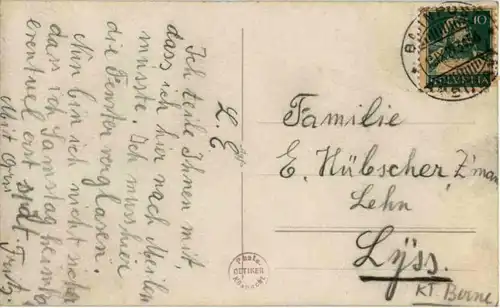 L. E
Ich teile Ihnen mit,
dass ich hier nach Meilen
musste. Ich muss hier
die Fenster verglasen.
Nun bin ich nicht sicher
dass ich Samstag heimko
eventuel erst spät.
Mit Gru Fritz
Familie
E. Hübscher Z'man
Lehn
Lÿss.
KT. Berne
Photo
OETIKER
10
HELVETIA